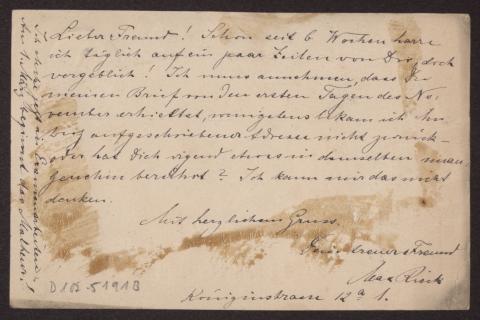 Lieber Freund! Schon seit 6 Wochen harre
ich täglich auf ein paar Zeilen von Dir, doch
vergeblich! Ich muss annehmen, dass Du
meinen Brief von den ersten Tagen des No-
vember erhieltest, wenigstens bekam ich ihn
aufgeschriebener Adresse nicht zurück -
oder hat Dich irgend etwas in demselben unan-
genehm berührt? Ich kann mir das nicht
denken.
Mit herzlichem Gruss.
Dein treuer Freund
Max
Königinstrasse 12a I.
D 102-5191B
Ich stecke jetzt in Examenarbeiten.
Am 1. März beginnt das Malheur!